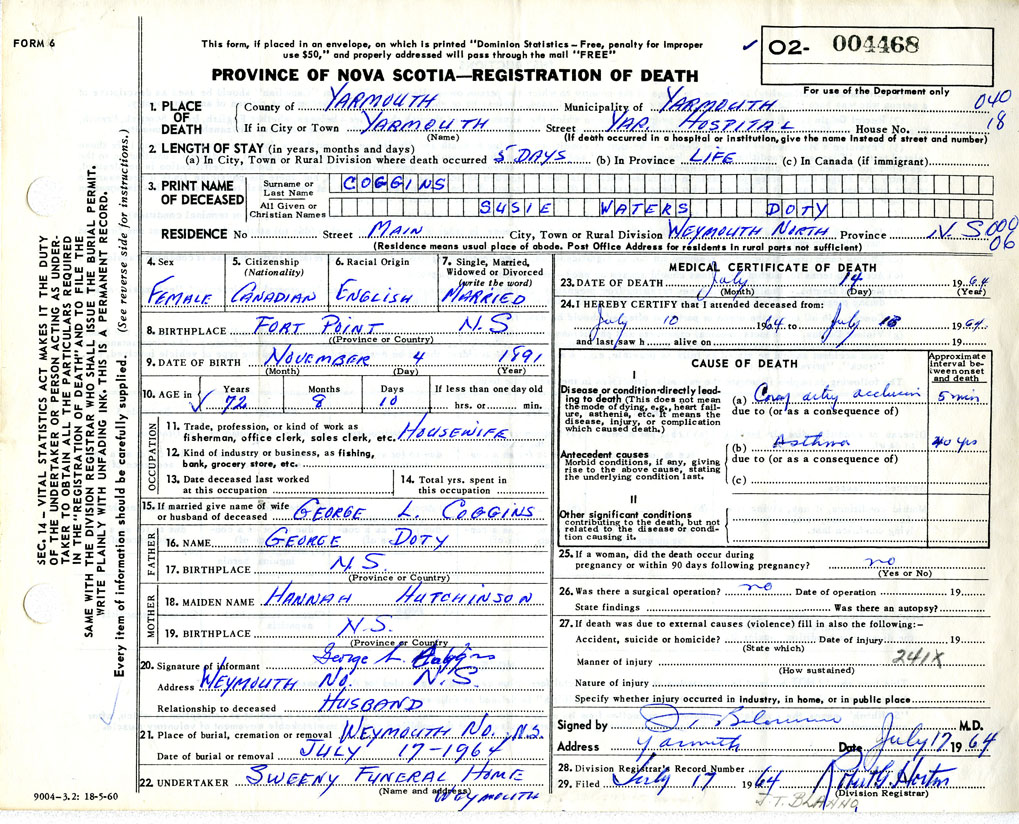 FORM 6
This form, if placed in an envelope, on which is printed "Dominion Statistics – Free, penalty for improper
use $50," and properly addressed will pass through the mail "FREE"
✓ O2- 004468
For use of the Department only
PROVINCE OF NOVA SCOTIA—REGISTRATION OF DEATH
040
18
1. PLACE OF DEATH
County of YARMOUTH Municipality of YARMOUTH
If in City or Town YARMOUTH Street YAR. HOSPITAL House No.
(Name) (If death occurred in a hospital or institution, give the name instead of street and number)
2. LENGTH OF STAY (in years, months and days)
(a) In City, Town or Rural Division where death occurred 5 DAYS (b) In Province LIFE (c) In Canada (if immigrant)
3. PRINT NAME OF DECEASED
Surname or Last Name COGGINS
All Given or Christian Names SUSIE WATERS DOTY
RESIDENCE No Street MAIN City, Town or Rural Division WEYMOUTH NORTH Province N.S 000
06
(Residence means usual place of abode. Post Office Address for residents in rural parts not sufficient)
4. Sex FEMALE
5. Citizenship (Nationality) CANADIAN
6. Racial Origin ENGLISH
7. Single, Married, Widowed or Divorced (write the word) MARRIED
8. BIRTHPLACE FORT POINT N.S
(Province or Country)
9. DATE OF BIRTH NOVEMBER 4 1891
(Month) (Day) (Year)
10. AGE in ✓ Years 72 Months 8 Days 10 If less than one day old hrs. or min.
OCCUPATION
11. Trade, profession, or kind of work as
fisherman, office clerk, sales clerk, etc. HOUSEWIFE
12. Kind of industry or business, as fishing,
bank, grocery store, etc.
13. Date deceased last worked
at this occupation
14. Total yrs. spent in
this occupation
15. If married give name of wife
or husband of deceased GEORGE L. COGGINS
FATHER
16. NAME GEORGE DOTY
17. BIRTHPLACE N.S.
(Province or Country)
MOTHER
18. MAIDEN NAME HANNAH HUTCHINSON
19. BIRTHPLACE N.S.
(Province or Country)
20. Signature of informant George L. Coggins
Address WEYMOUTH NO. N.S.
Relationship to deceased HUSBAND
21. Place of burial, cremation or removal WEYMOUTH NO., N.S.
Date of burial or removal JULY 17-1964
22. UNDERTAKER SWEENY FUNERAL HOME
(Name and address) WEYMOUTH
9004–3.2: 18-5-60
MEDICAL CERTIFICATE OF DEATH
23. DATE OF DEATH July 14 1964
(Month) (Day) (Year)
24. I HEREBY CERTIFY that I attended deceased from:
July 10 1964 to July 13 1964.
and last saw h alive on 19
CAUSE OF DEATH
Approximate interval between onset and death
I
Disease or condition directly leading to death (This does not mean
the mode of dying, e.g., heart failure, asthenia, etc. It means the
disease, injury, or complication
which caused death.)
(a) artery occlusion 5 min
due to (or as a consequence of)
(b) Asthma 40 yrs
Antecedent causes
Morbid conditions, if any, giving
rise to the above cause, stating
the underlying condition last.
due to (or as a consequence of)
(c)
II
Other significant conditions
contributing to the death, but not
related to the disease or condition
causing it.
25. If a woman, did the death occur during
pregnancy or within 90 days following pregnancy? no
(Yes or No)
26. Was there a surgical operation? no Date of operation 19
State findings Was there an autopsy?
27. If death was due to external causes (violence) fill in also the following:–
Accident, suicide or homicide? Date of injury 19
(State which)
241X
Manner of injury
(How sustained)
Nature of injury
Specify whether injury occurred in industry, in home, or in public place
Signed by M.D.
Address Yarmouth Date July 17 1964
28. Division Registrar's Record Number
29. Filed July 17 1964 Horton
(Division Registrar)
SEC. 14 – VITAL STATISTICS ACT MAKES IT THE DUTY
OF THE UNDERTAKER OR PERSON ACTING AS UNDERTAKER
TO OBTAIN ALL THE PARTICULARS REQUIRED
IN THE "REGISTRATION OF DEATH" AND TO FILE THE
SAME WITH THE DIVISION REGISTRAR WHO SHALL ISSUE THE BURIAL PERMIT.
WRITE PLAINLY WITH UNFADING INK. THIS IS A PERMANENT RECORD.
Every item of information should be carefully supplied. (See reverse side for instructions.)